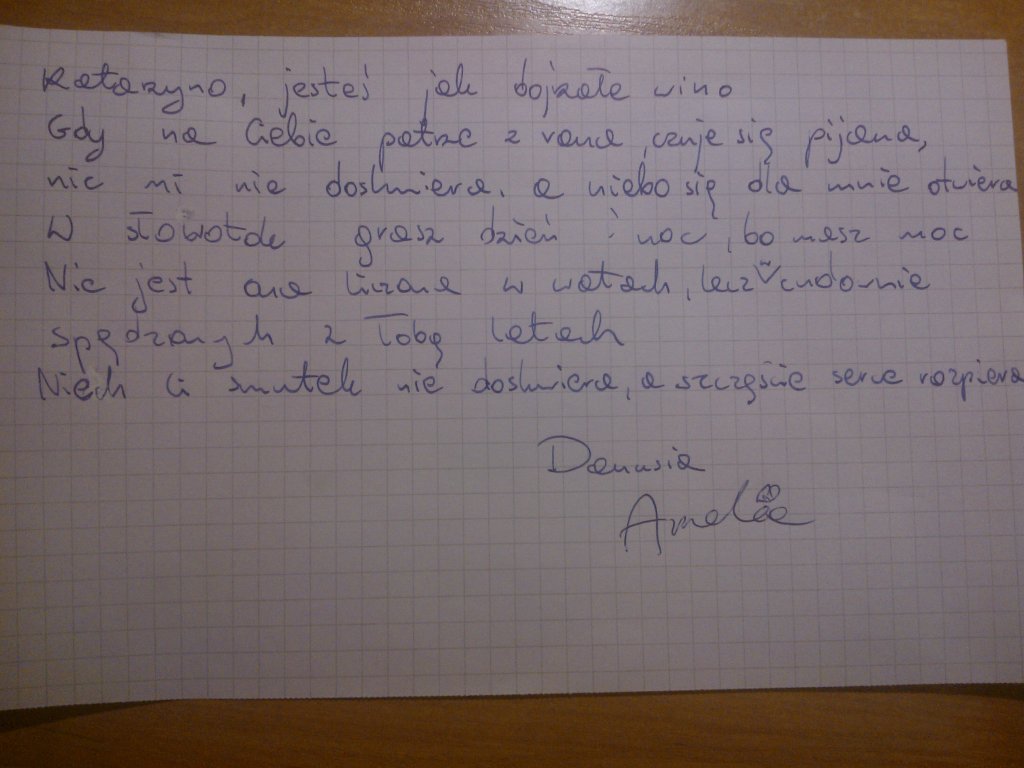 Katarzyno, jesteś jak dojrzałe wino
Gdy na Ciebie patrzę z rana, czuje się pijana,
nic mi nie doskwiera, a niebo się dla mnie otwiera
W słowotok grasz dzień i noc, bo masz moc
Nie jest ona liczona w watach, lecz w cudownie
spędzanych z Tobą latach
Niech Ci smutek nie doskwiera, a szczęście serce rozpiera
Danusia
Amelia